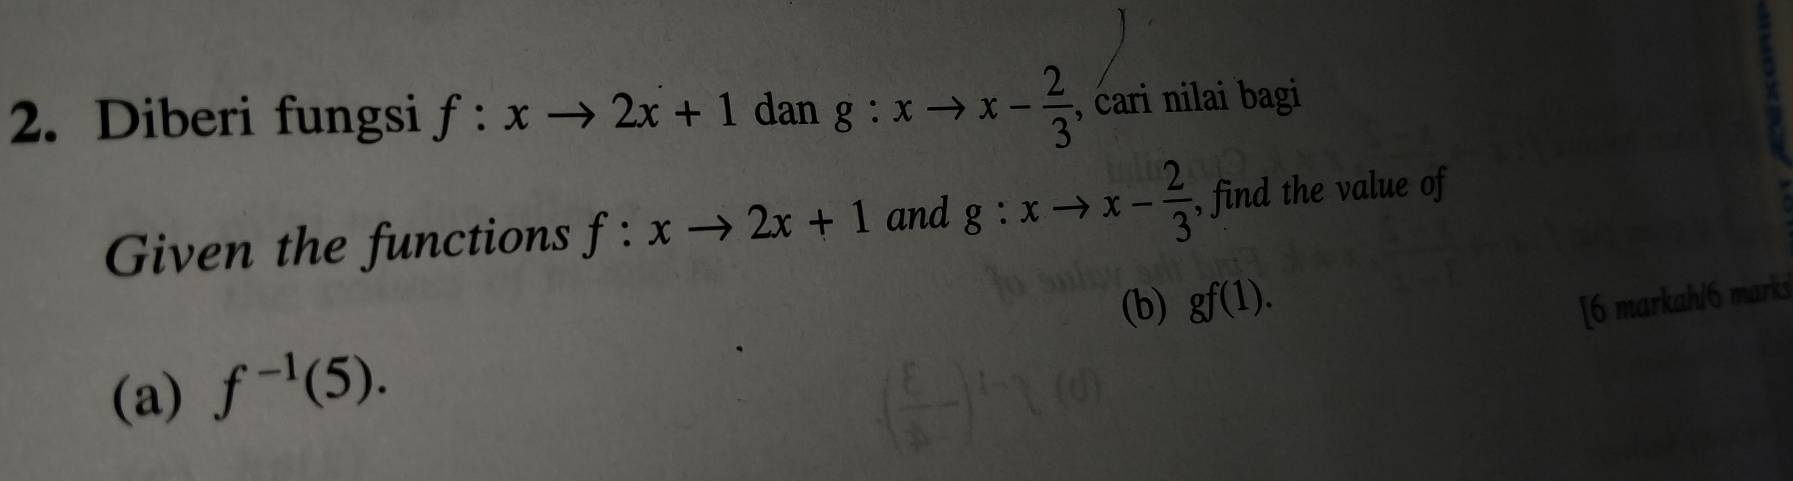 2. Diberi fungsi f : x → 2x + 1 dan g : x → x − 2/3, cari nilai bagi
Given the functions f : x → 2x + 1 and g : x → x − 2/3, find the value of
(a) f⁻¹(5).
(b) gf(1).
[6 markah/6 marks